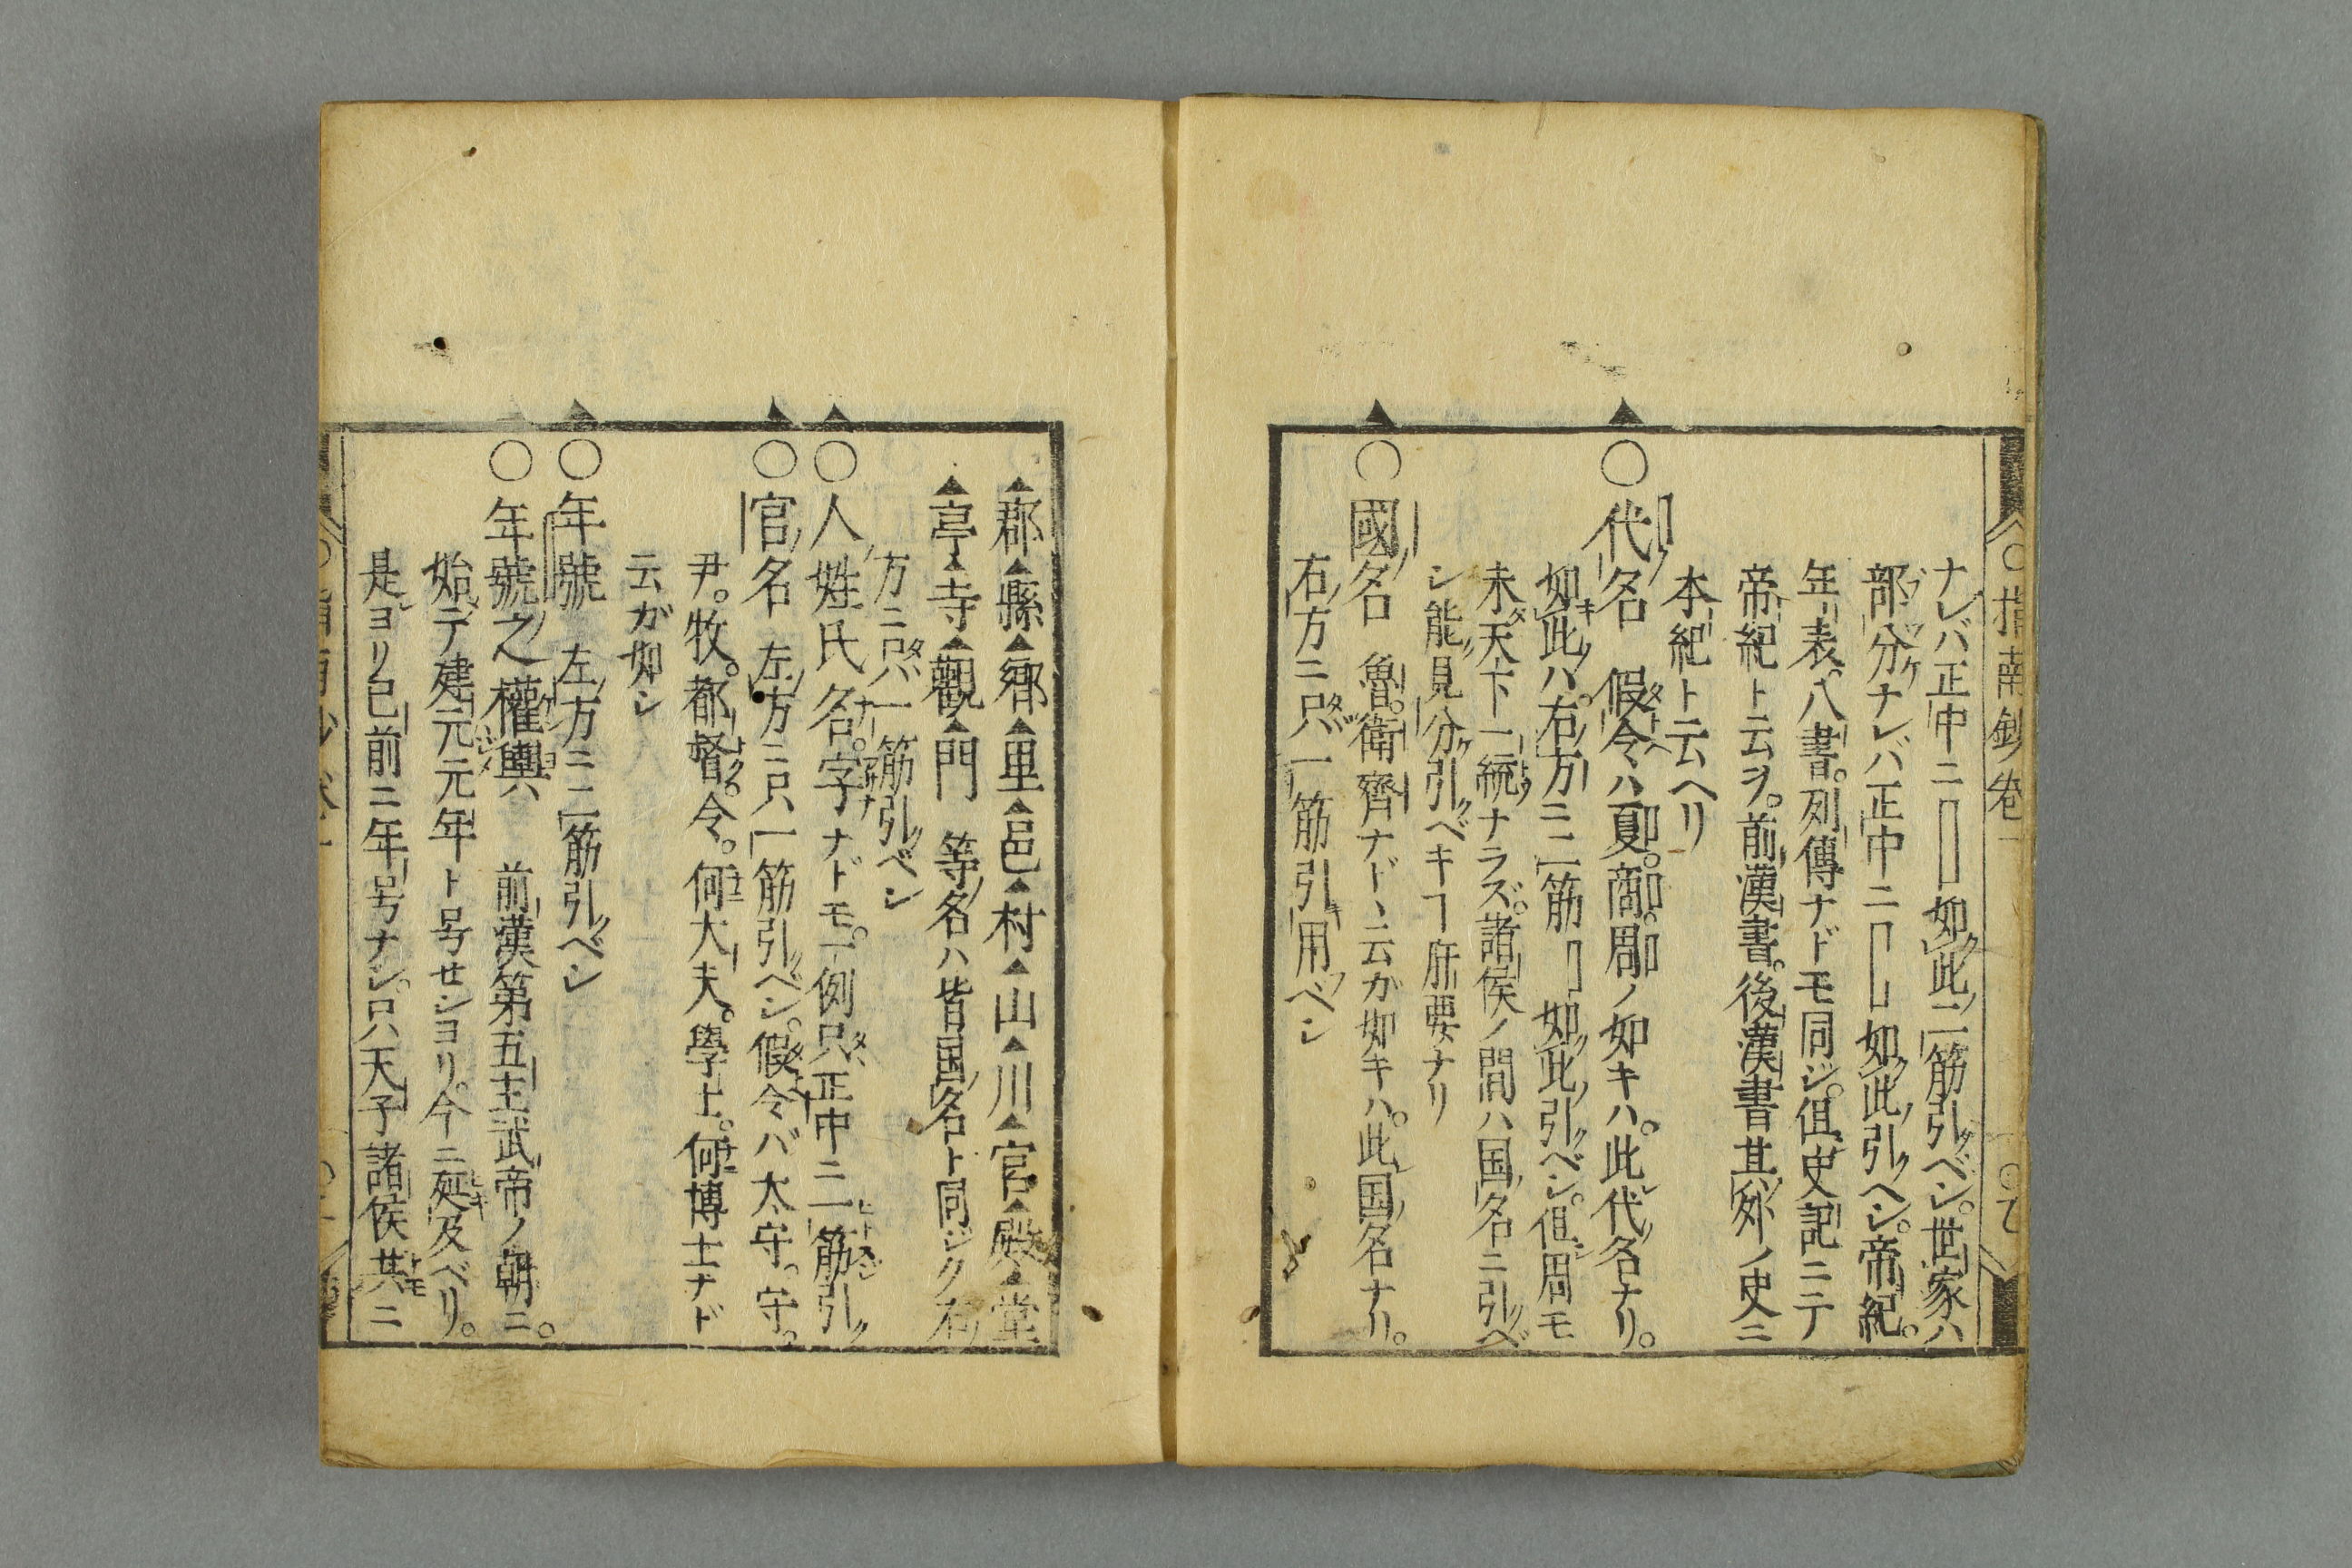 ○指南鈔卷一
ナレバ正中ニ如此二筋引ベシ。世家ハ
部分ナレバ正中ニ如此引ヘシ。帝紀。
年表。八書。列傳ナドモ同ジ。但史記ニテ
帝紀ト云ヲ。前漢書。後漢書其外ノ史ニ
本紀ト云ヘリ
○代名 假令ハ夏。商。周ノ如キハ。此代名ナリ。
如此ハ。右方ニ二筋如此引ベシ。但周モ
未天下一統ナラズ。諸侯ノ間ハ国名ニ引ベ
シ能見分引ベキヿ肝要ナリ
○國名 魯。衛齊ナドヽ云ガ如キハ。此国名ナリ。
右方ニ只一筋引用ベシ
▲郡▲縣▲鄉▲里▲邑▲村▲山▲川▲官▲殿▲堂
▲亭▲寺▲觀▲門 等名ハ皆国名ト同ジク右
方ニ只一筋引ベシ
○人姓氏名。字ナドモ。一例只正中ニ一筋引
○官名 左方ニ只一筋引ベシ。假令バ太守。守。
尹。牧。都督。令。何大夫。學士。何博士ナド
云ガ如シ
○年號 左方ニ二筋引ベシ
○年號之權輿ハ 前漢第五主武帝ノ朝ニ。
始テ建元元年ト号セシヨリ。今ニ延及ベリ。
是ヨリ已前ニ年号ナシ。只天子諸侯其ニ